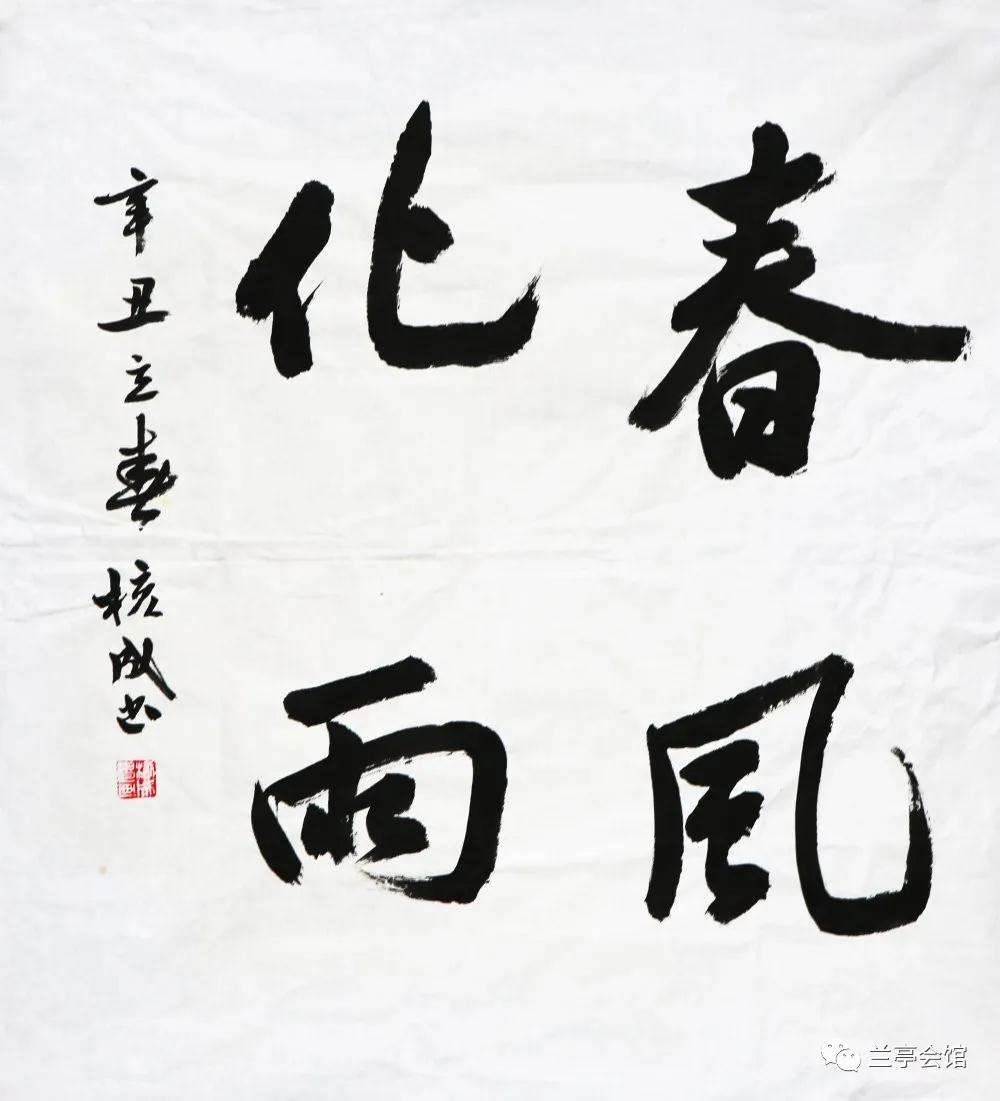 春风
化雨
辛丑立春 核成书
兰亭会馆